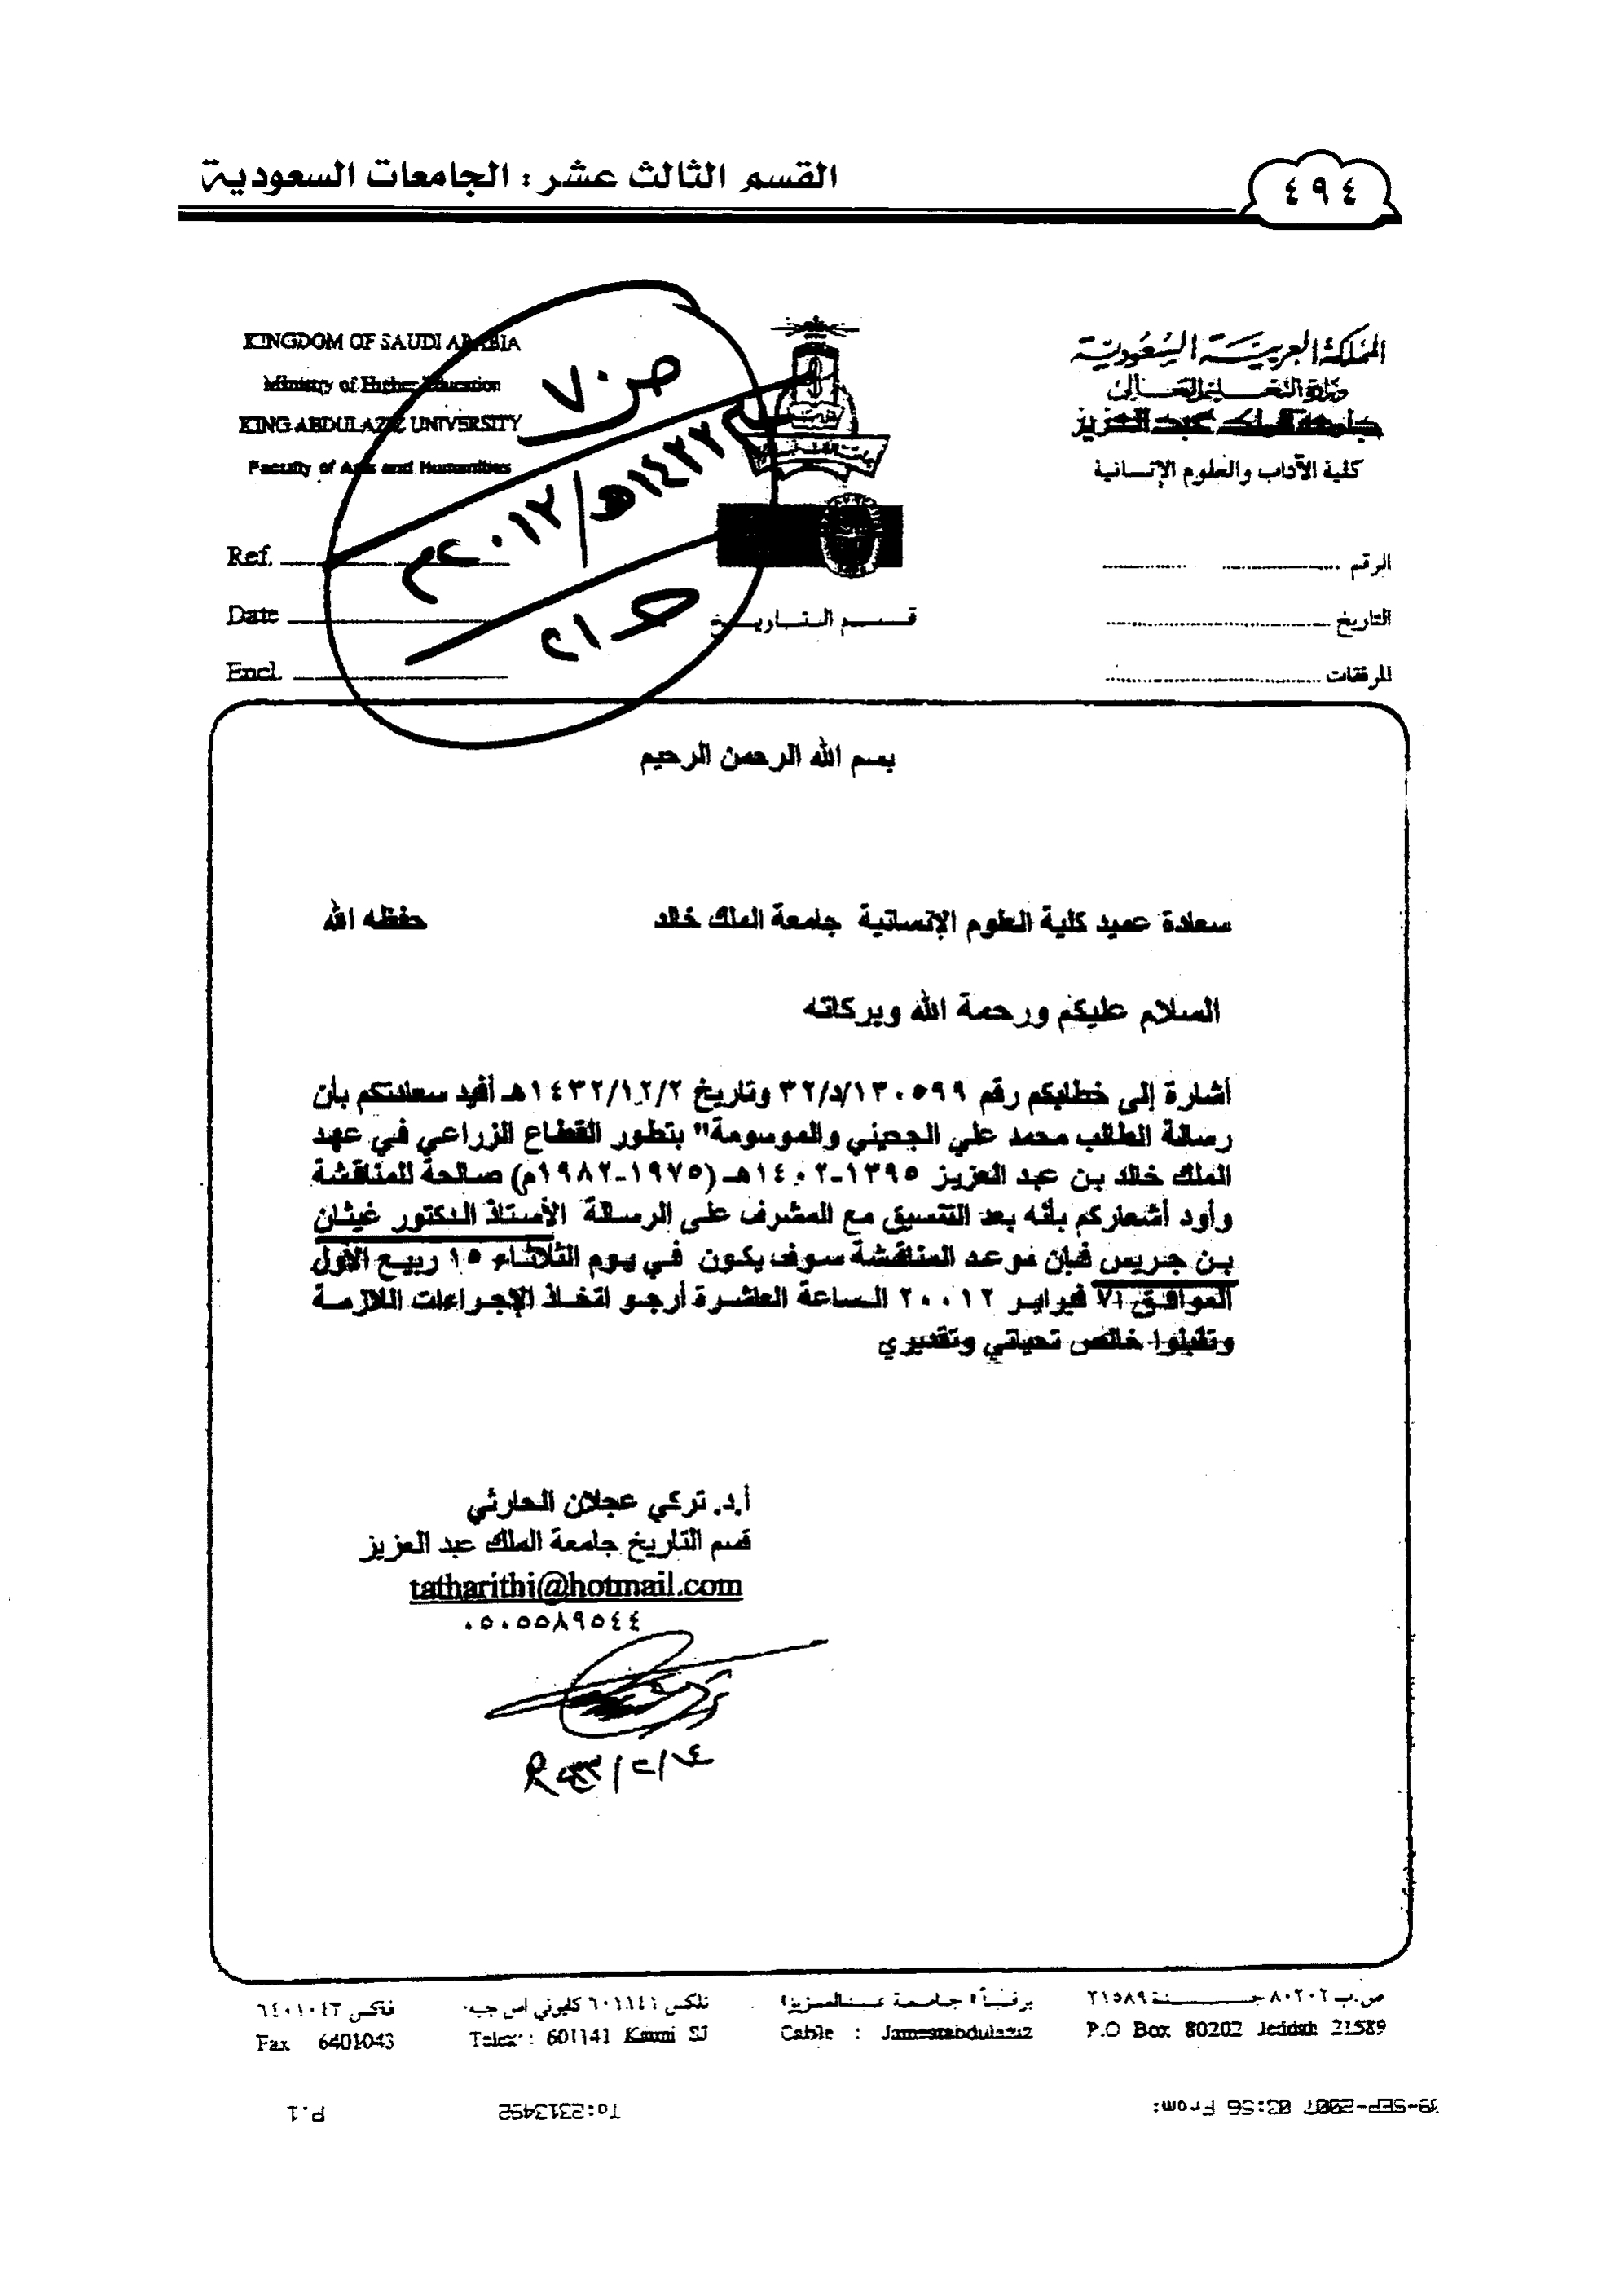 القسم الثالث عشر : الجامعات السعودية
٤٩٤
KINGDOM OF SAUDI ARABIA
Ministry of Higher Education
KING ABDULAZIZ UNIVERSITY
Faculty of Arts and Humanities
Ref.
Date
Encl.
المملكة العربية السعودية
وزارة التعليم العالي
جامعة الملك عبد العزيز
كلية الآداب والعلوم الإنسانية
الرقم
التاريخ
المرفقات
قسم التاريخ
بسم الله الرحمن الرحيم
سعادة عميد كلية العلوم الإنسانية جامعة الملك خالد حفظه الله
السلام عليكم ورحمة الله وبركاته
أشارة إلى خطابكم رقم ٣٢/د/١٣٠٥٩٩ وتاريخ ١٤٣٢/١٢/٢هـ أفيد سعادتكم بأن
رسالة الطالب محمد علي الجحيني والموسومة" بتطور القطاع الزراعي في عهد
الملك خالد بن عبد العزيز ١٣٩٥-١٤٠٢هـ (١٩٧٥-١٩٨٢م) صالحة للمناقشة
وأود أشعاركم بأنه بعد التنسيق مع المشرف على الرسالة الأستاذ الدكتور غيثان
بن جريس فإن موعد المناقشة سوف يكون في يوم الثلاثاء ١٥ ربيع الأول
الموافق ٧ فبراير ٢٠٠١٢ الساعة العاشرة أرجو اتخاذ الإجراءات اللازمة
وتقبلوا خالص تحياتي وتقديري
أ.د. تركي عجلان الحارثي
قسم التاريخ جامعة الملك عبد العزيز
tatharithi@hotmail.com
٠٥٠٥٥٨٩٥٤٤
ص.ب ٨٠٢٠٢ جـــدة ٢١٥٨٩
فاكس ٦٤٠١٠٤٣
Fax 6401043
Telex : 601141 Kauni SJ
Cable : Jameatabdulaziz
P.O Box 80202 Jeddah 21589
09-SEP-2007 03:56 From:
To:2313492
P.1